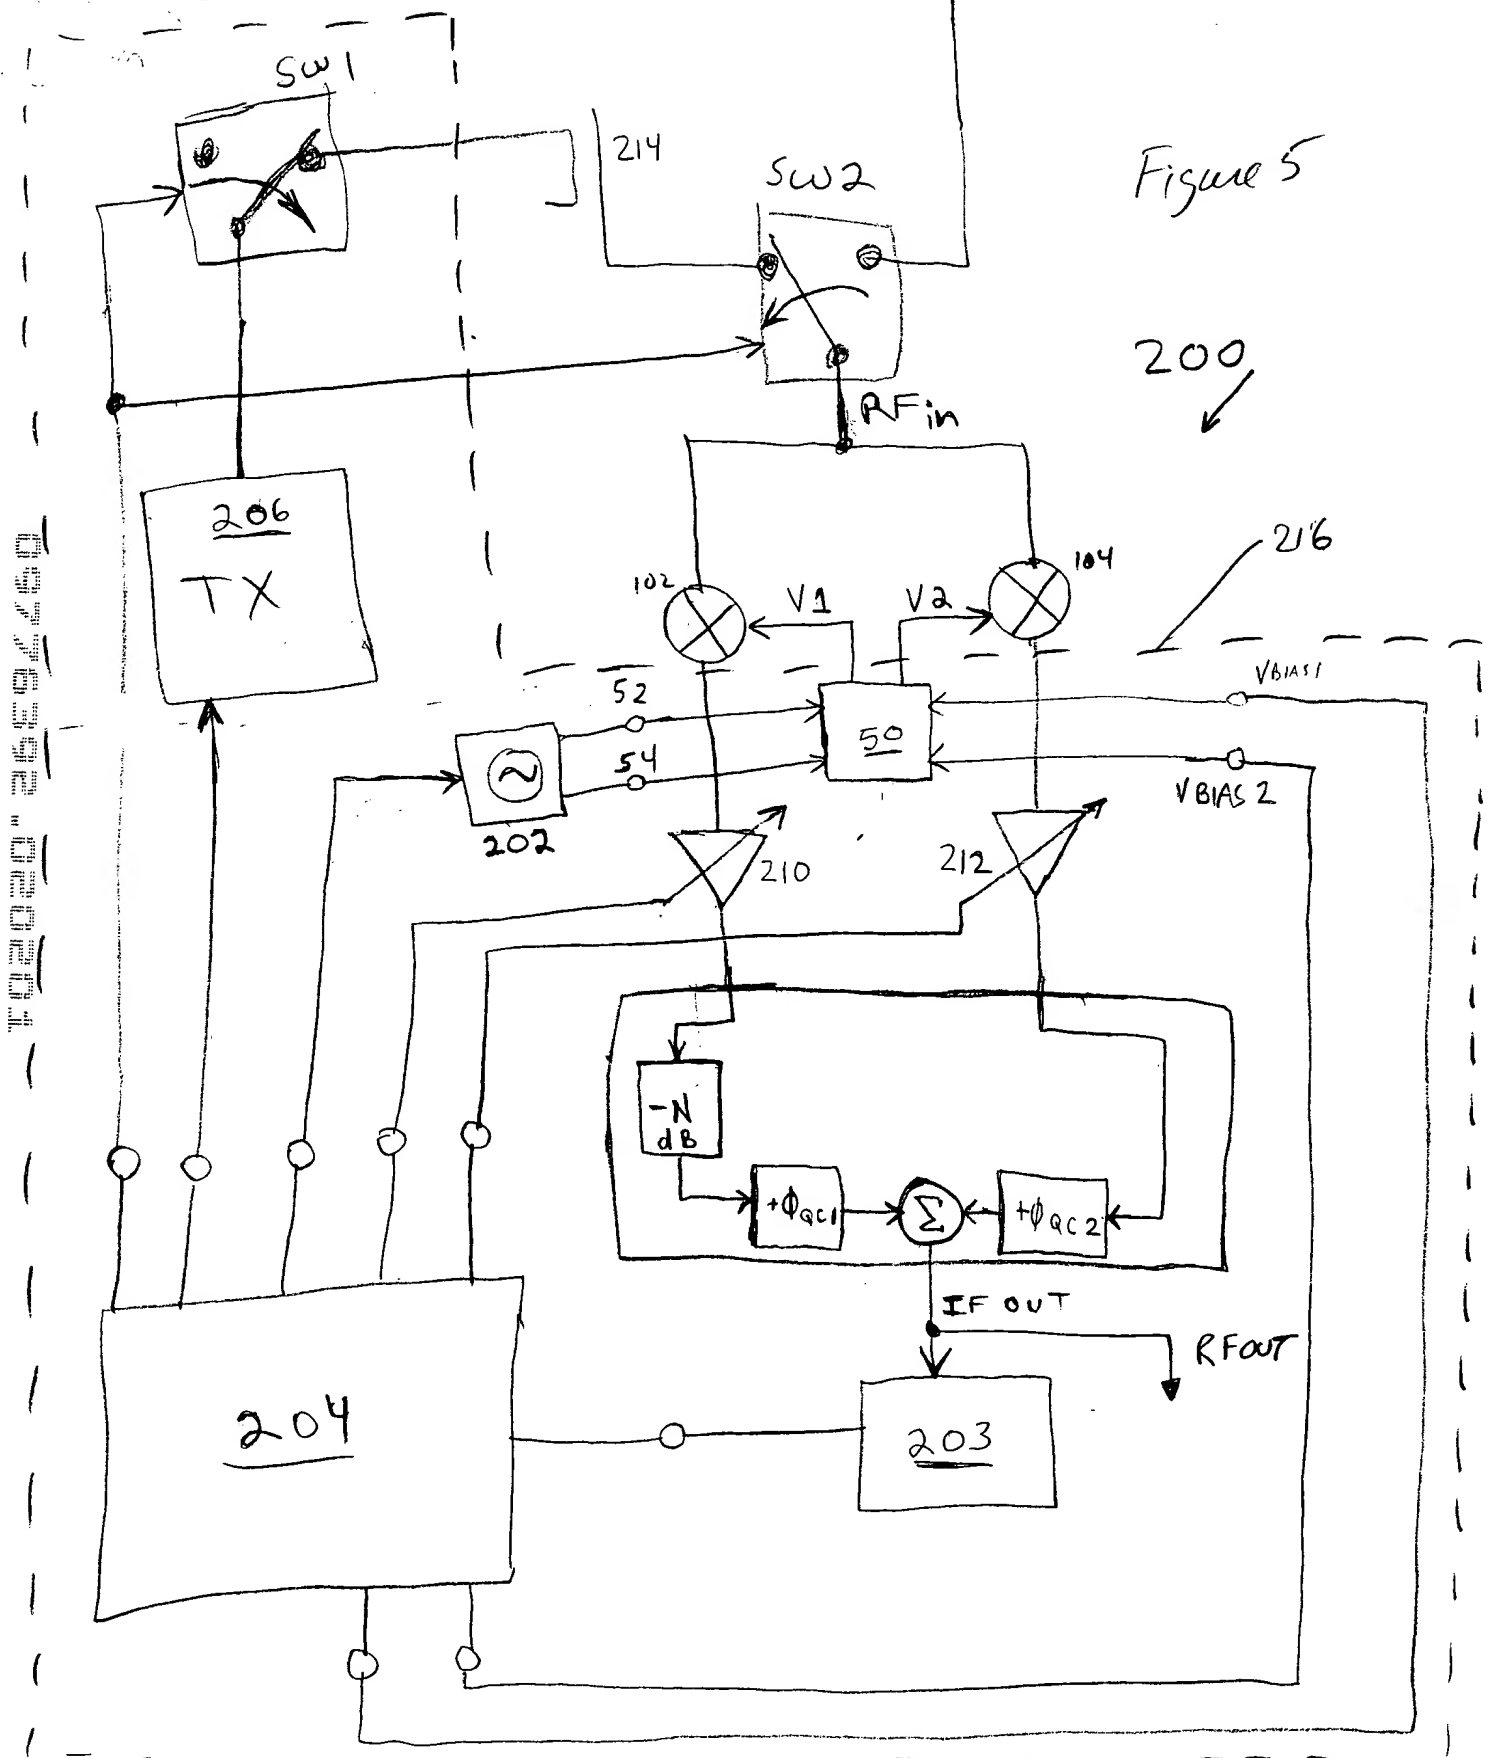 SW1
214
SW2
Figure 5
200
RFin
206
TX
216
102
104
V1
V2
52
54
50
VBIAS1
VBIAS2
202
210
212
-N
dB
+ΦQC1
Σ
+ΦQC2
IF OUT
RFOUT
204
203
09776392.020201